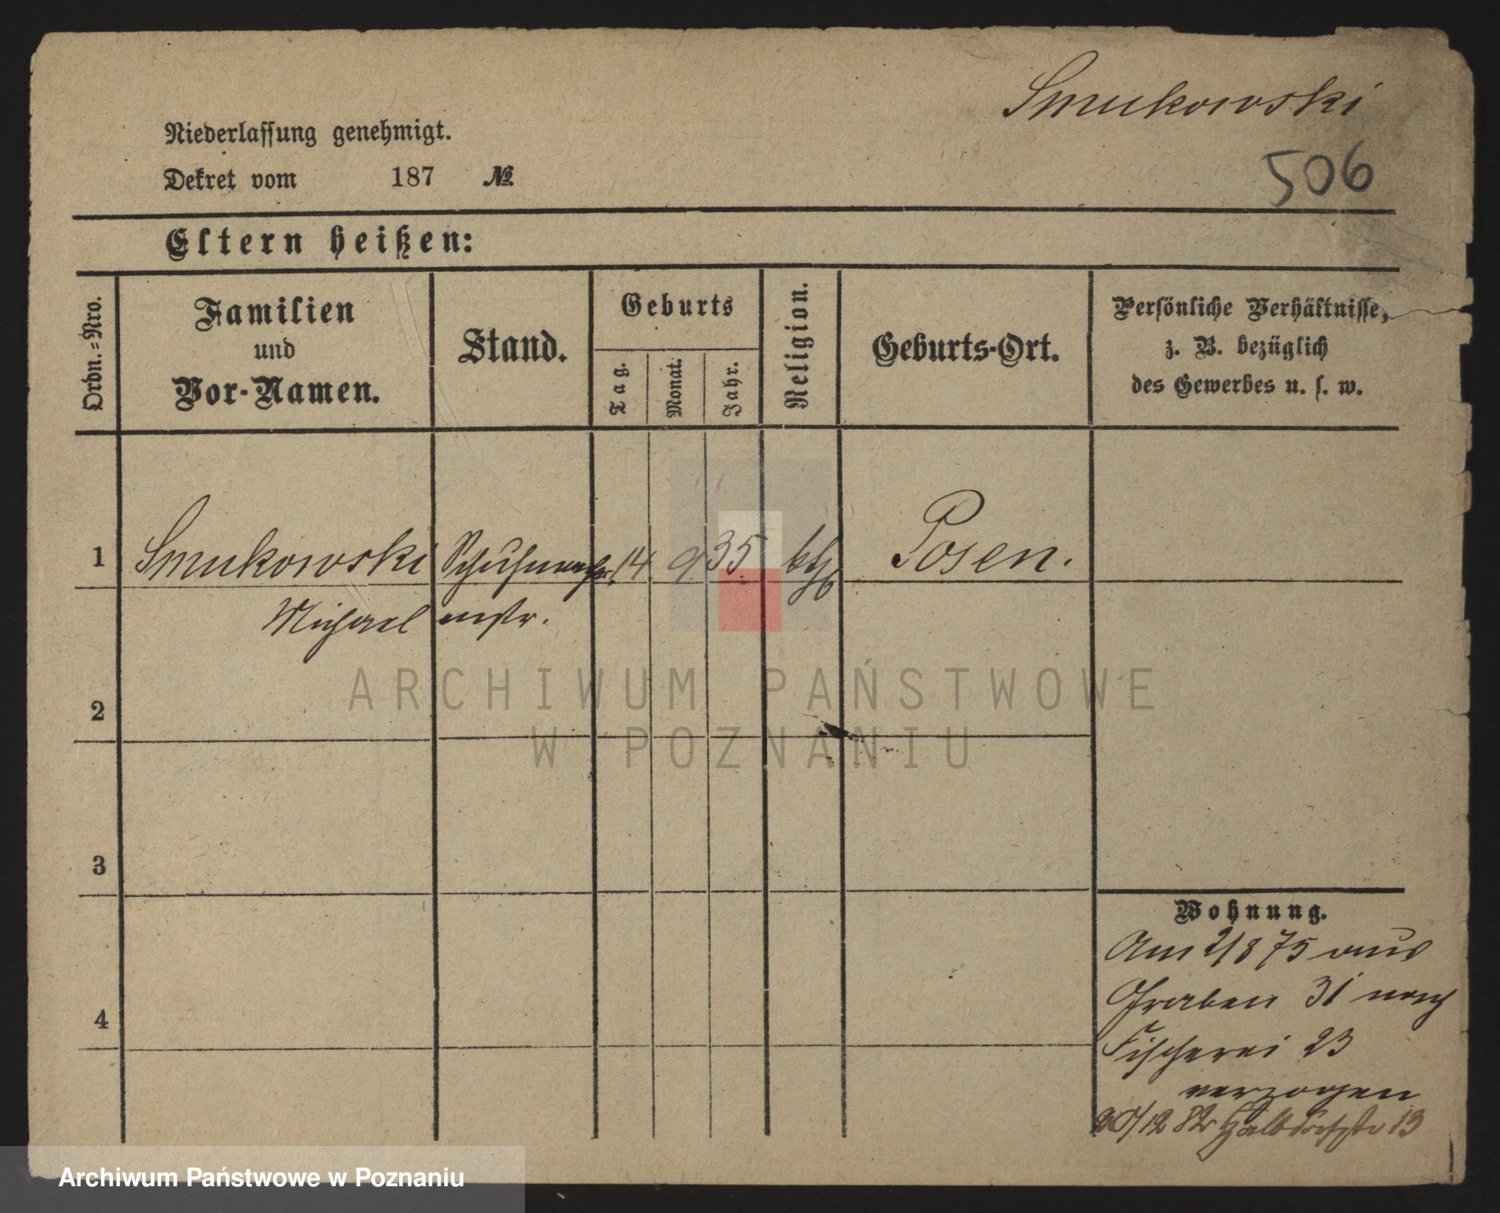 Smukowski
506
Niederlassung genehmigt.
Dekret vom 187 №
Eltern heißen:
Ordn.-Nro.
Familien
und
Vor-Namen.
Stand.
Geburts
Tag.
Monat.
Jahr.
Religion.
Geburts-Ort.
Persönliche Verhältnisse,
z. B. bezüglich
des Gewerbes u. s. w.
1 Smukowski Schuhmacher 14 9 35 kth Posen.
Michael mstr.
ARCHIWUM PAŃSTWOWE
W POZNANIU
2
3
4
Wohnung.
Am 2/8 75 aus
Graben 31 nach
Fischerei 23
verzogen
20/12 82 Halbdorfstr 13
Archiwum Państwowe w Poznaniu